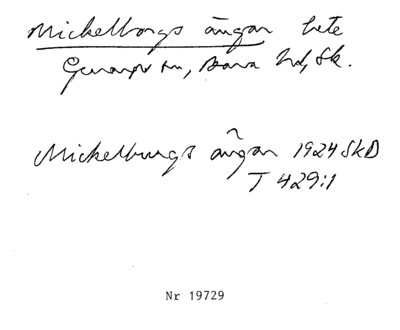 Mickelborgs ängar bete
Genarps sn, Bara hd, Sk.
Mickelburgs ängar 1924 SkD
T 429:1
Nr 19729